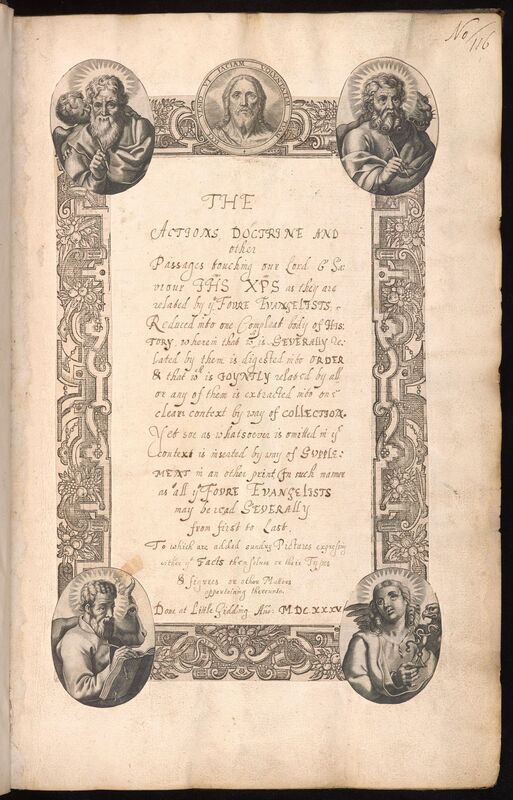 No 116
UT FACIAM VOLUNTATEM
THE
ACTIONS DOCTRINE AND
other
Passages touching our Lord & Sa:
viour IHS XPS as they are
related by yͤ FOVRE EVANGELISTS.
Reduced into one Compleat body of HIS:
TORY, wherein that wᶜʰ is SEVERALLY Re:
lated by them is digested into ORDER
& that wᶜʰ is JOYNTLY related by all
or any of them is extracted into one
clear context by way of COLLECTION.
Yet soe as whatsoever is omitted in yͤ
Context is inserted by way of SUPPLE:
MENT in an other print In such maner
as all yͤ FOVRE EVANGELISTS
may be read SEVERALLY
from first to Last.
To which are added sundry Pictures expressing
either yͤ FACTS themselves or their Types
& figures or other Matters
appertaining thereunto.
Done at Little Gidding Ano: MDC.XXXV